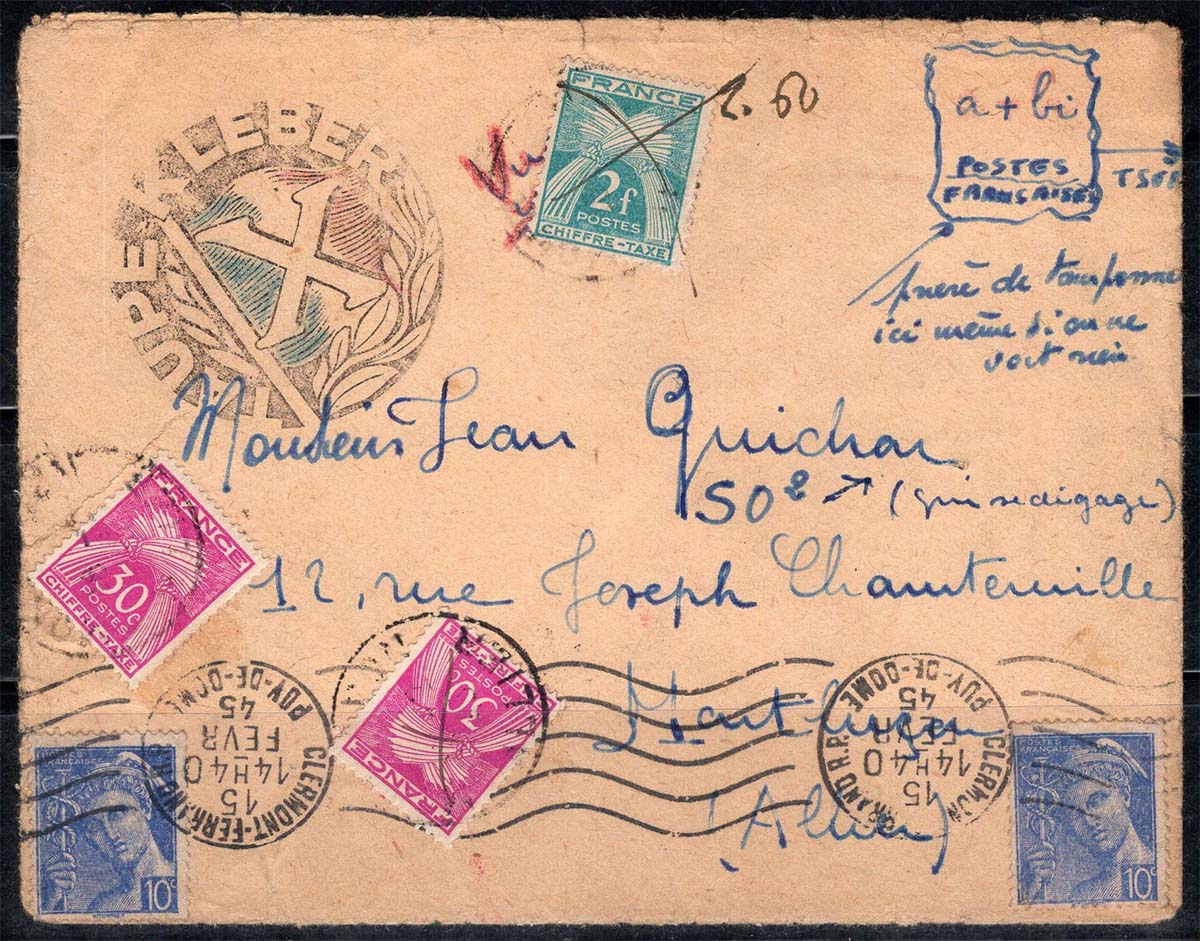 TAUPE KLEBER
X
FRANCE
2f
POSTES
CHIFFRE-TAXE
Vu
2.60
a + bi
POSTES
FRANÇAISES
prière de tamponner
ici même si on ne
voit rien
Monsieur Jean Guichar
SO² ↗ (qui se dégage)
12, rue Joseph Chanteuille
Montluçon
(Allier)
FRANCE
30c
POSTES
CHIFFRE-TAXE
FRANCE
30c
POSTES
CHIFFRE-TAXE
CLERMONT-FERRAND
15
14H40
FEVR
45
PUY-DE-DOME
CLERMONT-FERRAND R.P.
15
14H40
FEVR
45
PUY-DE-DOME
POSTES
FRANÇAISES
10c
POSTES
FRANÇAISES
10c